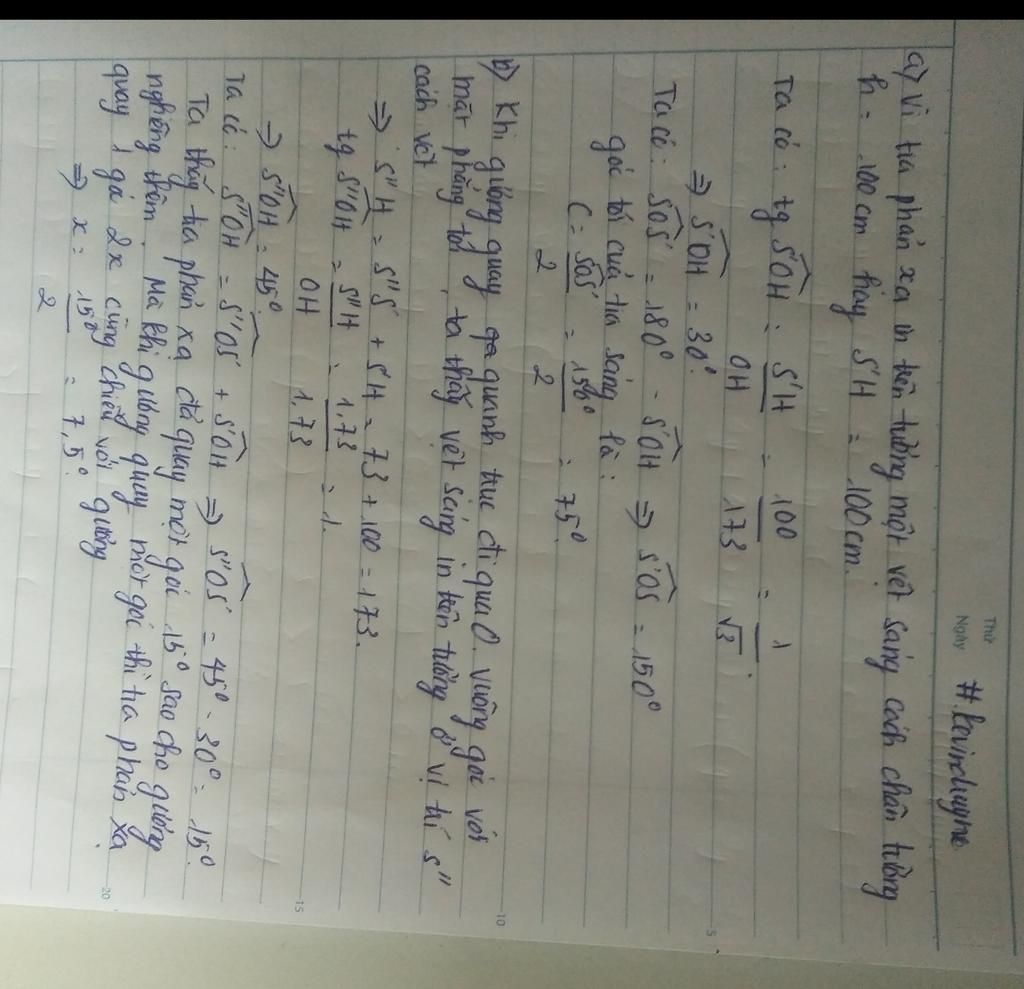 Thứ
Ngày
#.kevinduyne.
a) Vì tia phản xạ in trên tường một vết sáng cách chân tường
h = 100 cm hay S'H = 100cm.
Ta có: tg S'OH = S'H / OH = 100 / 173 = 1 / √3
⇒ S'OH = 30°.
Ta có: SOS' = 180° - S'OH ⇒ S'OS = 150°
góc tới của tia sáng là:
i = SOS' / 2 = 150° / 2 = 75°.
b) Khi gương quay quanh trục đi qua O, vuông góc với
mặt phẳng tới, ta thấy vệt sáng in trên tường ở vị trí S''
cách vệt
⇒ S''H = S''S' + S'H = 73 + 100 = 173.
tg S''OH = S''H / OH = 1,73 / 1,73 = 1.
⇒ S''OH = 45°.
Ta có: S''OH = S''OS' + S'OH ⇒ S''OS' = 45° - 30° = 15°.
Ta thấy tia phản xạ đã quay một góc 15° sao cho gương
nghiêng thêm. Mà khi gương quay một góc thì tia phản xạ
quay 1 góc 2x cùng chiều với gương
⇒ x = 15° / 2 = 7,5°.
5
10
15
20